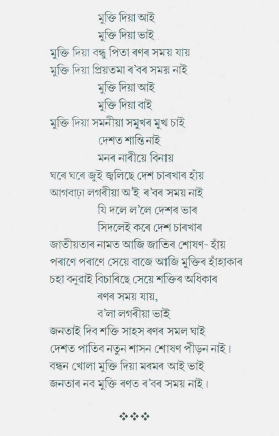 মুক্তি দিয়া আই
মুক্তি দিয়া ভাই
মুক্তি দিয়া বন্ধু পিতা ৰণৰ সময় যায়
মুক্তি দিয়া প্ৰিয়তমা ৰ'বৰ সময় নাই
মুক্তি দিয়া আই
মুক্তি দিয়া বাই
মুক্তি দিয়া সমনীয়া সমুখৰ মুখ চাই
দেশত শান্তি নাই
মনৰ নাৰীয়ে বিনায়
ঘৰে ঘৰে জুই জ্বলিছে দেশ চাৰখাৰ হাঁয়
আগবাঢ়া লগৰীয়া অ'ই ৰ'বৰ সময় নাই
যি দলে ল'লে দেশৰ ভাৰ
সিদলেই কৰে দেশ চাৰখাৰ
জাতীয়তাৰ নামত আজি জাতিৰ শোষণ- হাঁয়
পৰাণে পৰাণে সেয়ে বাজে আজি মুক্তিৰ হাঁহাকাৰ
চহা বনুৱাই বিচাৰিছে সেয়ে শক্তিৰ অধিকাৰ
ৰণৰ সময় যায়,
ব'লা লগৰীয়া ভাই
জনতাই দিব শক্তি সাহস ৰণৰ সমল ঘাই
দেশত পাতিব নতুন শাসন শোষণ পীড়ন নাই।
বন্ধন খোলা মুক্তি দিয়া মৰমৰ আই ভাই
জনতাৰ নব মুক্তি ৰণত ৰ'বৰ সময় নাই।